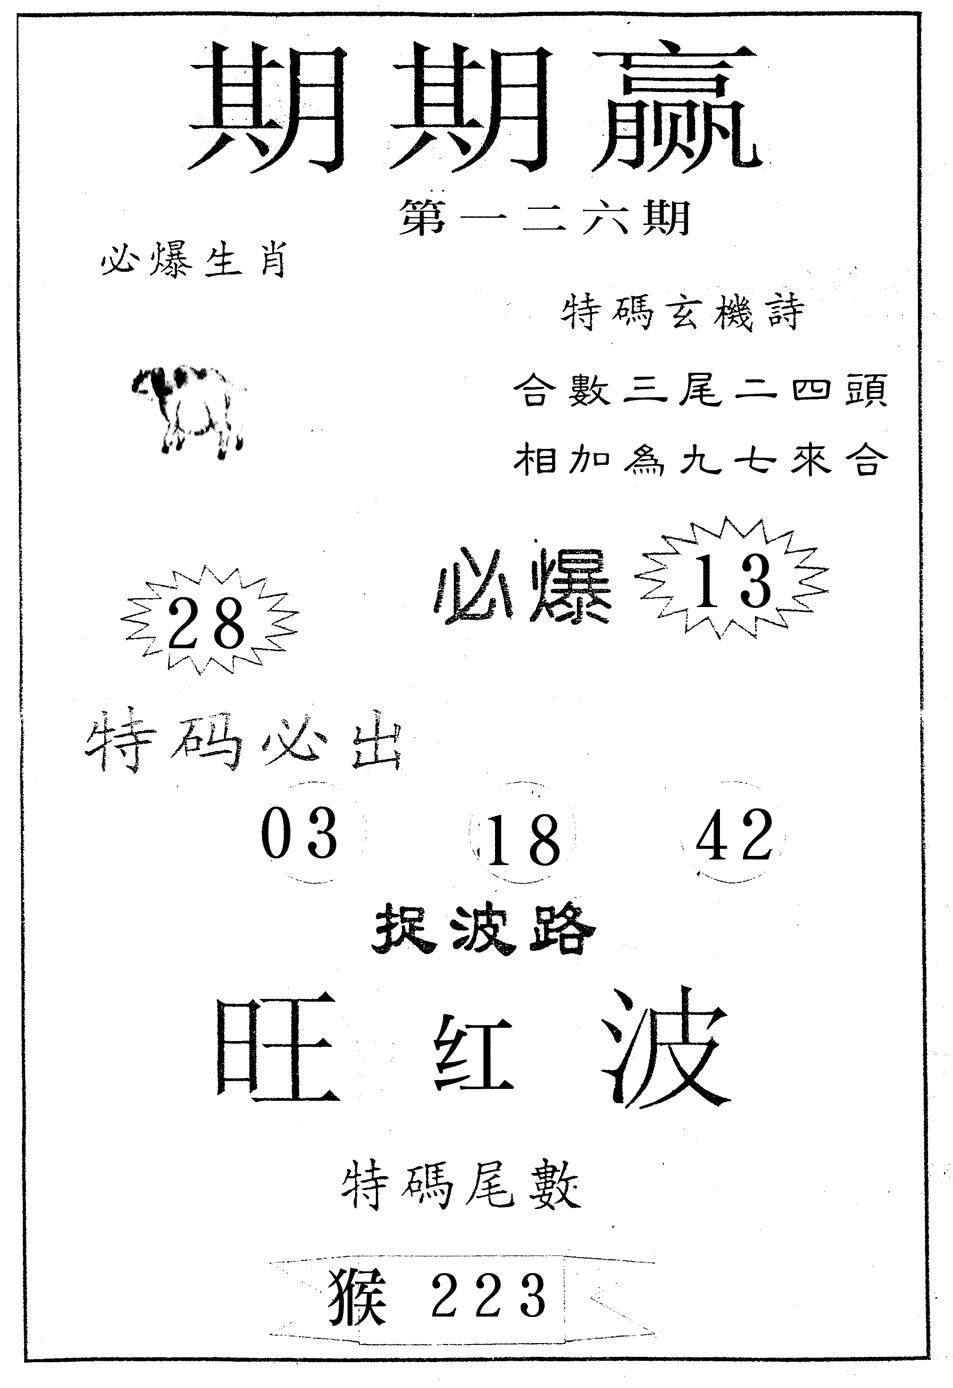 期期赢
第一二六期
必爆生肖
特碼玄機詩
合數三尾二四頭
相加為九七來合
必爆 13
28
特码必出
03 18 42
捉波路
旺红波
特碼尾數
猴 223